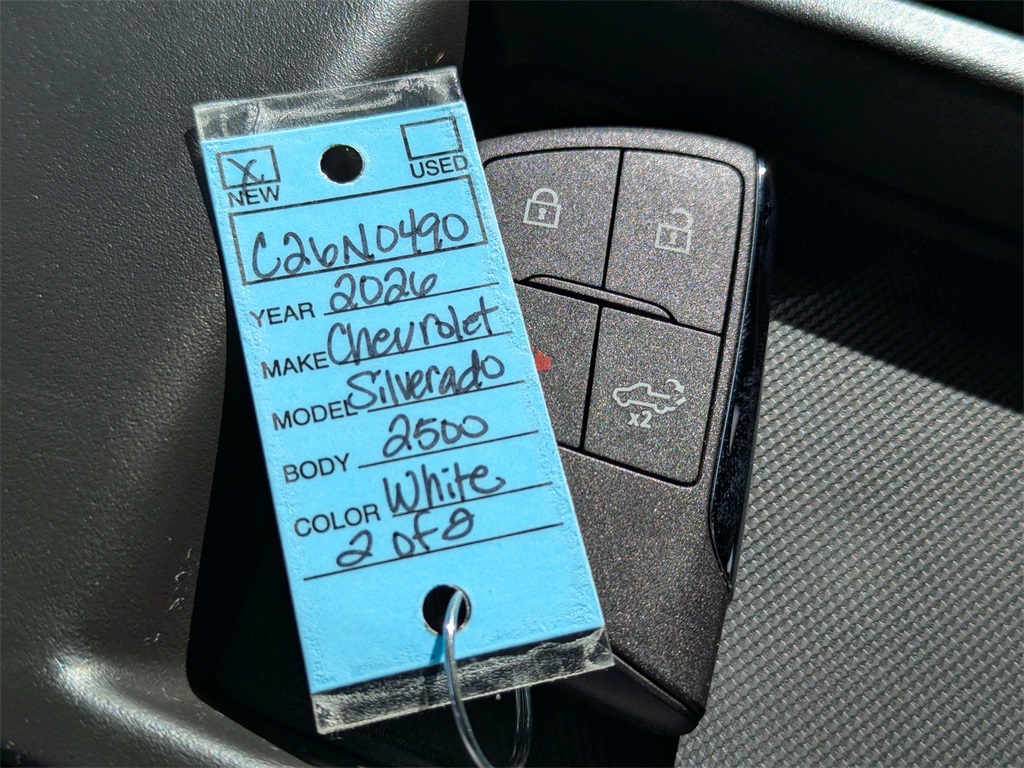 X
NEW USED
C26N0490
YEAR 2026
MAKE Chevrolet
MODEL Silverado
BODY 2500
COLOR White
2 of 8
x2